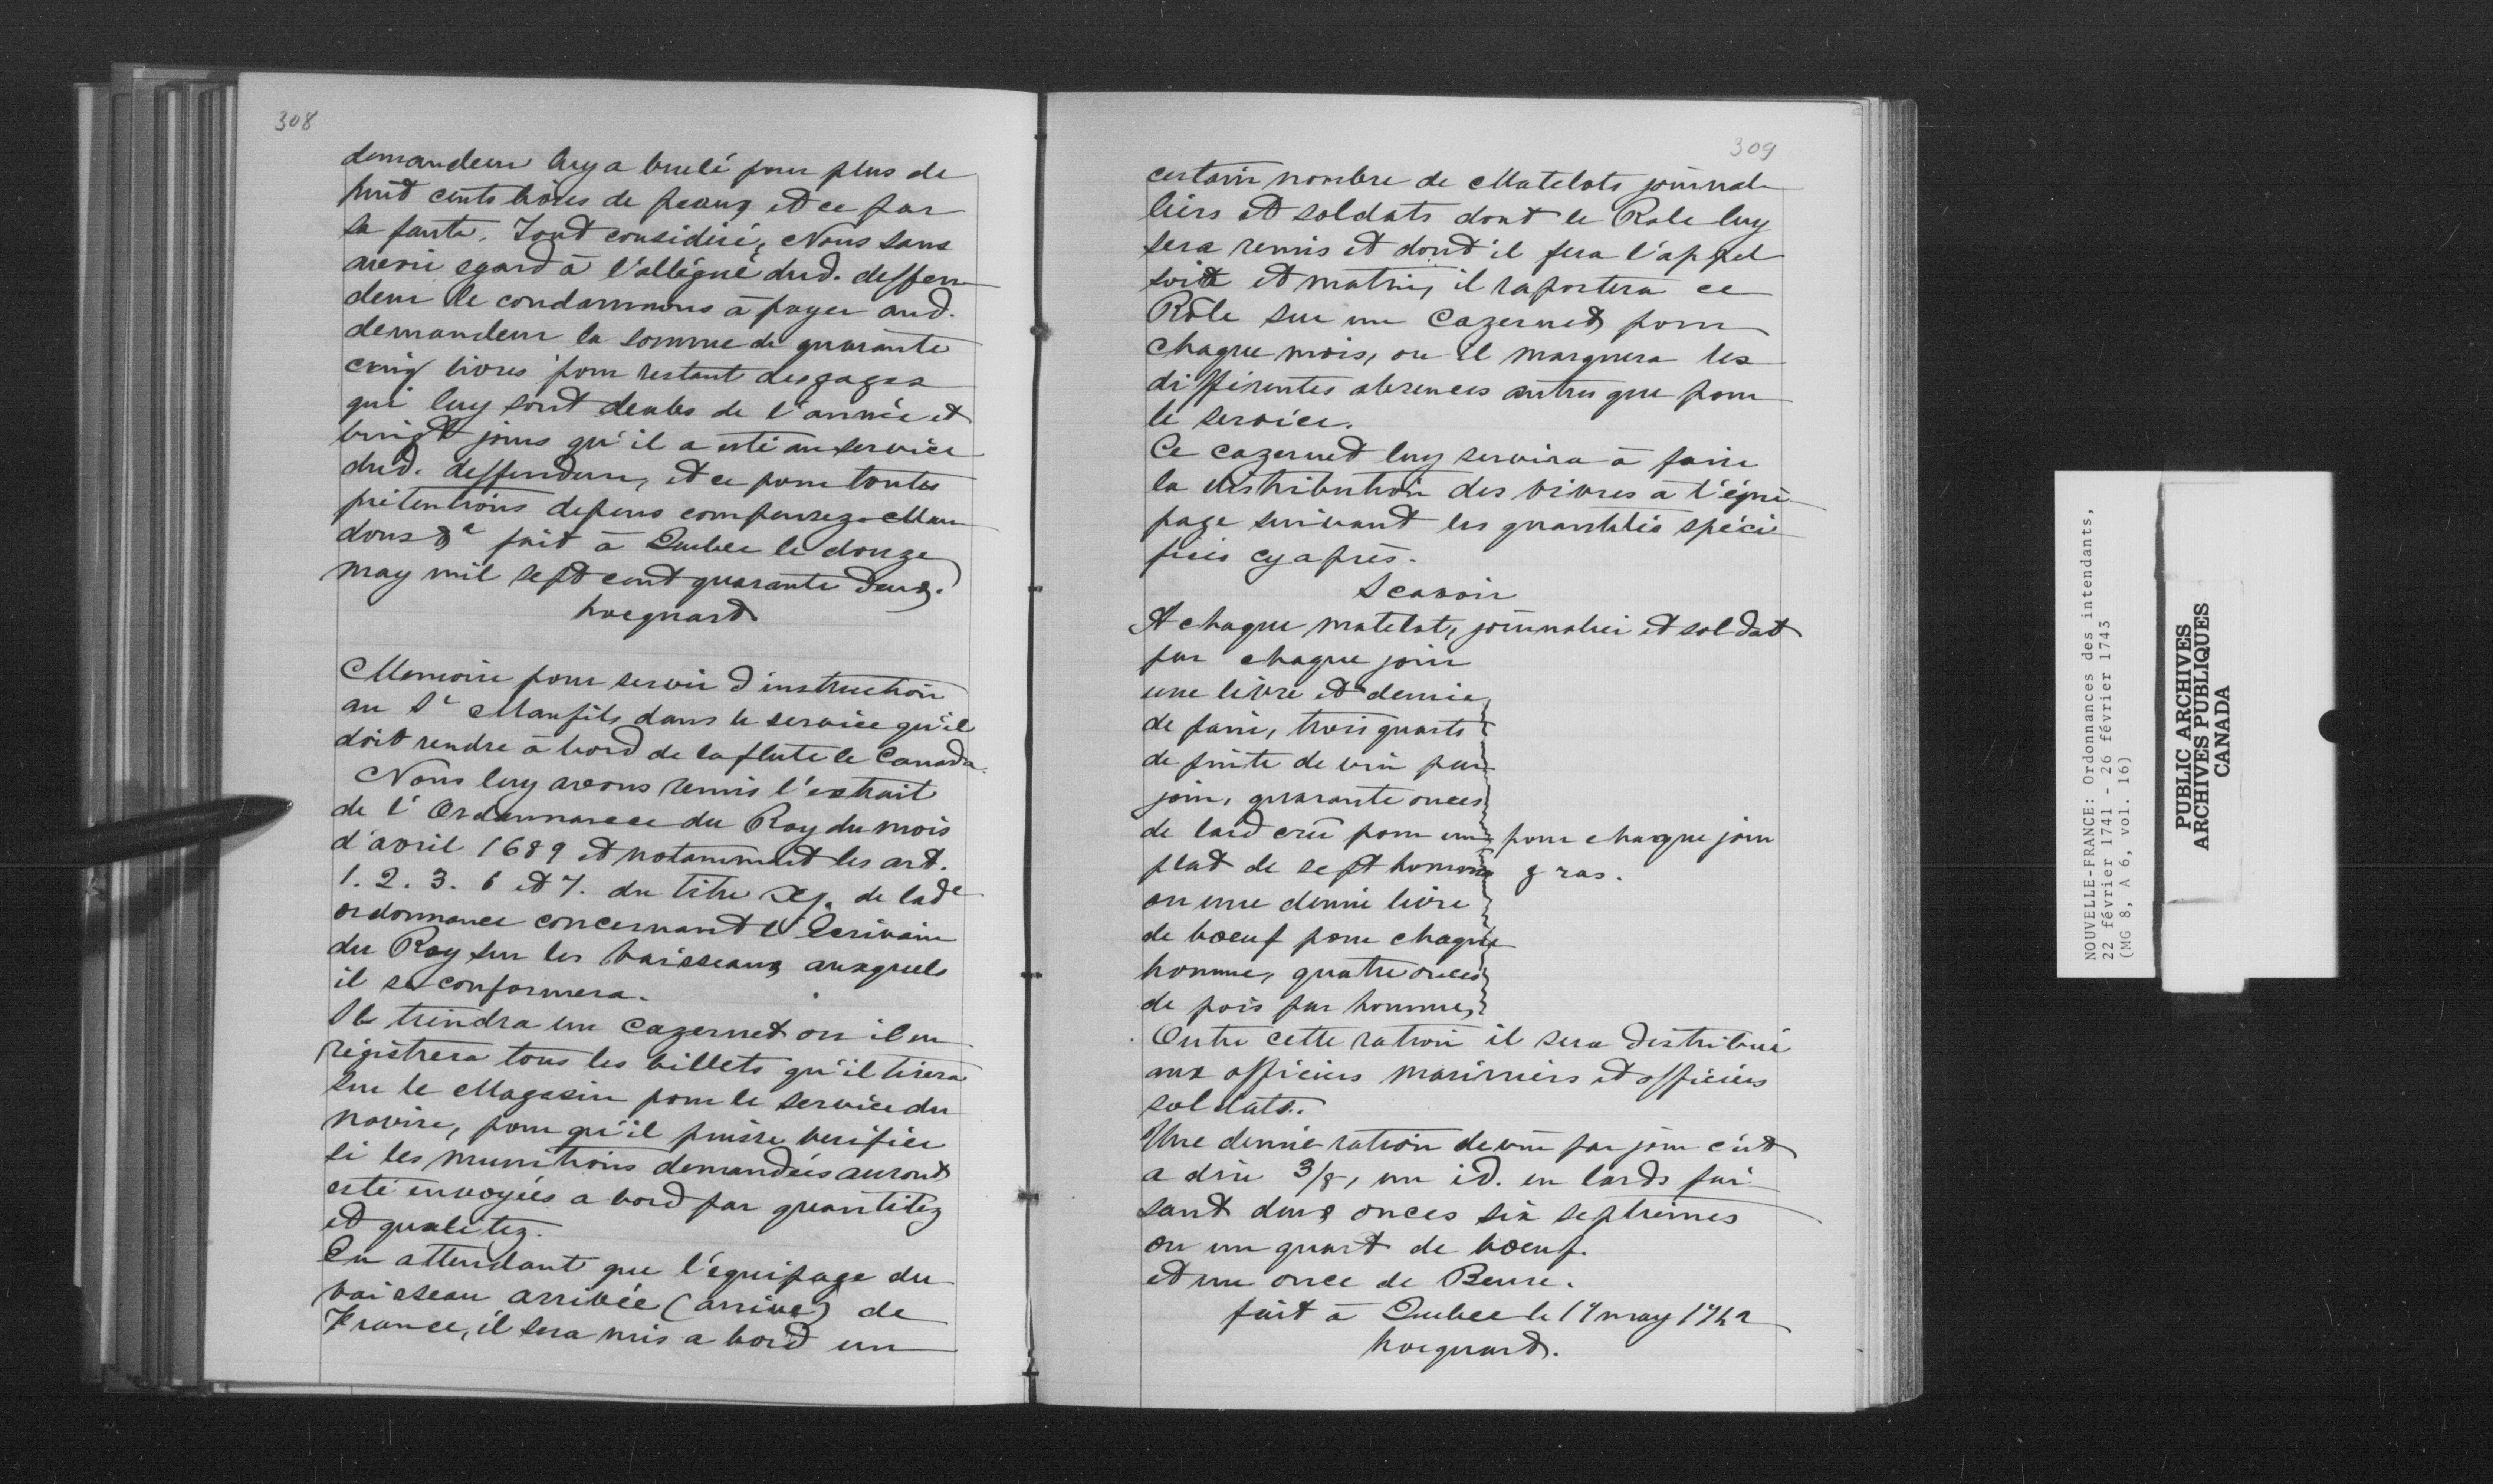 308
demandeur luy a brulé pour plus de
huit cents livres de peaux et ce par
sa faute. Tout considéré, Nous sans
avoir egard à l'allégué dud. deffen
deur le condamnons à payer aud.
demandeur la somme de quarante
cinq livres pour restant des gages
qui luy sont deubs de l'année et
vingt jours qu'il a esté au service
dud. deffendeur, et ce pour toutes
prétentions depens compensez. Man
dons &a fait à Quebec le douze
may mil sept cent quarante deux.
hocquard
Memoire pour servir d'instruction
au Sr Manfils dans le service qu'il
doit rendre à bord de la flute le Canada.
Nous luy avons remis l'extrait
de l'Ordonnance du Roy du mois
d'avril 1689 et notamment les art.
1. 2. 3. 6 et 7. du titre XI. de lade
ordonnance concernant l'Ecrivain
du Roy sur les vaisseaux auxquels
il se conformera.
Il tiendra un Cazernet ou il en
régistrera tous les billets qu'il tirera
sur le Magasin pour le service du
navire, pour qu'il puisse verifier
si les munitions demandées auront
esté envoyées a bord par quantitez
et qualitez.
En attendant que l'équipage du
vaisseau arrivée (arrive) de
France, il sera mis a bord un
309
certain nombre de Matelots journal
liers et soldats dont le Role luy
sera remis et dont il fera l'appel
soir et matin, il raportera ce
Rôle sur un Cazernet pour
chaque mois, ou il marquera les
différentes absences autres que pour
le service.
Ce cazernet luy servira à faire
la distribution des vivres à l'équi
page suivant les quantités spéci
fiées cy après.
Scavoir
A chaque matelot, journalier et soldat
par chaque jour
une livre et demie
de pain, trois quarts
de pinte de vin par
jour, quarante onces
de lard crû pour un pour chaque jour
plat de sept hommes gras.
ou une demie livre
de boeuf pour chaque
homme, quatre onces
de pois par homme,
Outre cette ration il sera distribué
aux officiers mariniers et officiers
soldats.
Une demie ration de vin par jour c'est
a dire 3/8, un id. en lards fai
sant deux onces six septiemes
ou un quart de boeuf.
et une once de Beure.
fait à Quebec le 17 may 1742
hocquard.
NOUVELLE-FRANCE: Ordonnances des intendants,
22 février 1741 - 26 février 1743
(MG 8, A 6, vol. 16)
PUBLIC ARCHIVES
ARCHIVES PUBLIQUES
CANADA